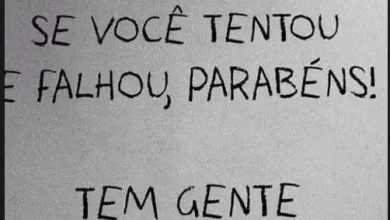 SE VOCÊ TENTOU
E FALHOU, PARABÉNS!
TEM GENTE